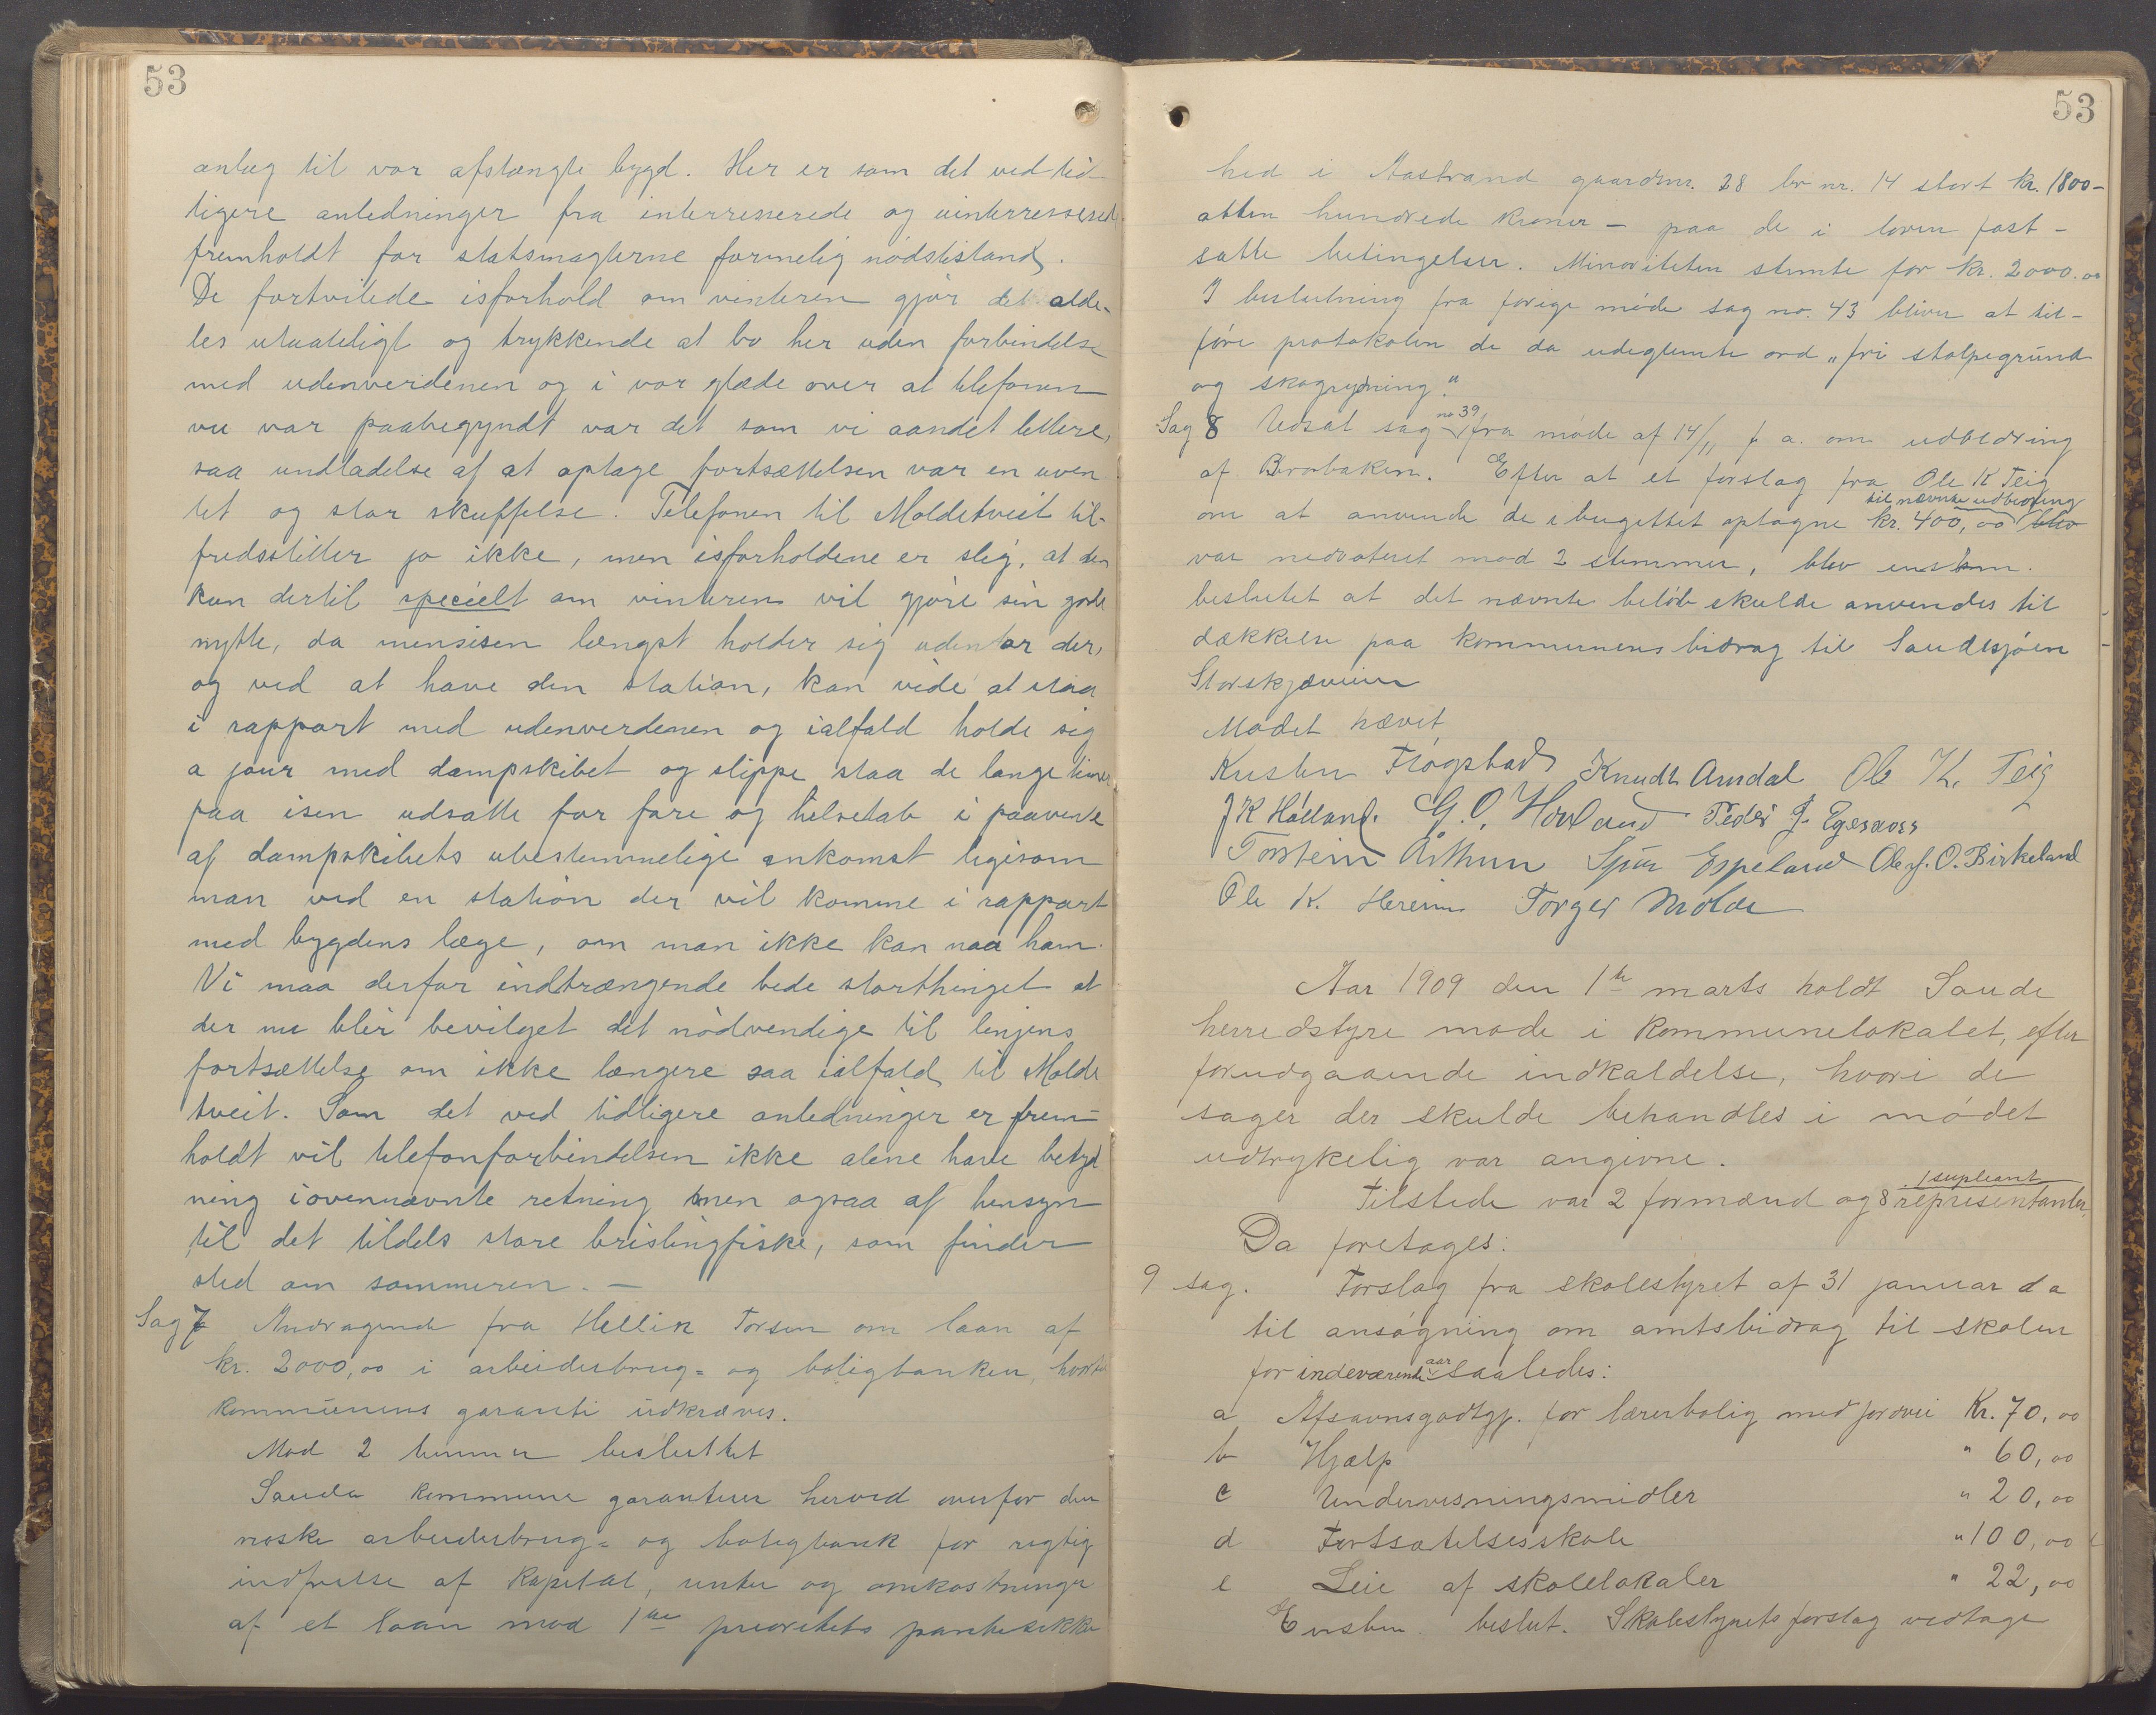 53
anlæg til vor afstængte bygd. Her er som det ved tid-
ligere anledninger fra interresserede og uinterresserede
fremholdt for statsmagterne formelig nødstistand.
De fortvilede isforhold om vinteren gjør det alde-
les utaaleligt og trykkende at bo her uden forbindelse
med udenverdenen og i vor glæde over at telefonen
nu var paabegyndt var det som vi aandet lettere,
saa undladelse af at optage fortsættelsen var en uven
tet og stor skuffelse. Telefonen til Moldetveit til-
fredsstiller jo ikke, men isforholdene er slig, at den
kun dertil specielt om vinteren vil gjøre sin gode
nytte, da mensisen længst holder sig udenfor der,
og ved at have den station, kan vide at staa
i rapport med udenverdenen og ialfald holde sig
a jour med dampskibet og slippe staa de lange timer
paa isen udsatte for fare og helsetab i paavente
af dampskibets ubestemmelige ankomst ligesom
man ved en station der vil komme i rapport
med bygdens læge, om man ikke kan naa ham.
Vi maa derfor indtrængende bede storthinget at
der nu blir bevilget det nødvendige til linjens
fortsættelse om ikke længere saa ialfald til Molde
tveit. Som det ved tidligere anledninger er frem-
holdt vil telefonforbindelsen ikke alene have betyd
ning i ovennævnte retning men ogsaa af hensyn
til det tildels store brislingfiske, som finder
sted om sommeren. —
Sag 7 Andragende fra Hellik Torsen om laan af
kr. 2000,00 i arbeiderbrug- og boligbanken, hvortil
kommunens garanti udkræves.
Mod 2 stemmer besluttet
Sauda kommune garanterer herved overfor den
norske arbeiderbrug- og boligbank for rigtig
indfrielse af kapital, renter og omkostninger
af et laan mod 1ste prioritets pantesikker
53
hed i Aastrand gaardsnr. 28 br nr. 14 stort kr. 1800-
atten hundrede kroner - paa de i loven fast-
satte betingelser. Minoriteten stemte for kr. 2000.00
I beslutning fra forige møde sag no. 43 bliver at til-
føre protokolen de da udeglemte ord "fri stolpegrund
og skogrydning."
Sag 8 Udsat sag no 39 fra møde af 14/11 f a. om udbedring
af Brorbakken. Efter at et forslag fra Ole K Teig
om at anvende de i bugettet optagne kr. 400,00 til nævnte udbedring blev
var nedvoteret mod 2 stemmer, blev enstem.
beslutet at det nævnte beløb skulde anvendes til
dækkelse paa kommunens bidrag til Saudesjøen
Storskjæveien
Mødet hævet,
Kristen Fløgstad Knudt Amdal Ole K. Teig
J K Hølland. G. O. Hovland Peder J. Egernæss
Torstein Arthun Sjur Espeland Ole J. O. Birkeland
Ole K. Hereim Torger Molde
Aar 1909 den 1te marts holdt Saude
herredstyre møde i kommunelokalet, efter
forudgaaende indkaldelse, hvori de
sager der skulde behandles i mødet
udtrykelig var angivne.
Tilstede var 2 formænd og 8 representanter. 1 supleant
Da foretages:
9 sag. Forslag fra skolestyret af 31 januar d a
til ansøgning om amtsbidrag til skolen
for indeværende aar saaledes:
a Afsavnsgodtgj. for lærerbolig med jordvei Kr. 70,00
b Hjælp " 60,00
c Undervisningsmidler " 20,00
d Fortsættelsesskole " 100,00
e Leie af skolelokaler " 22,00
Enstem. beslut. Skolestyrets forslag vedtage